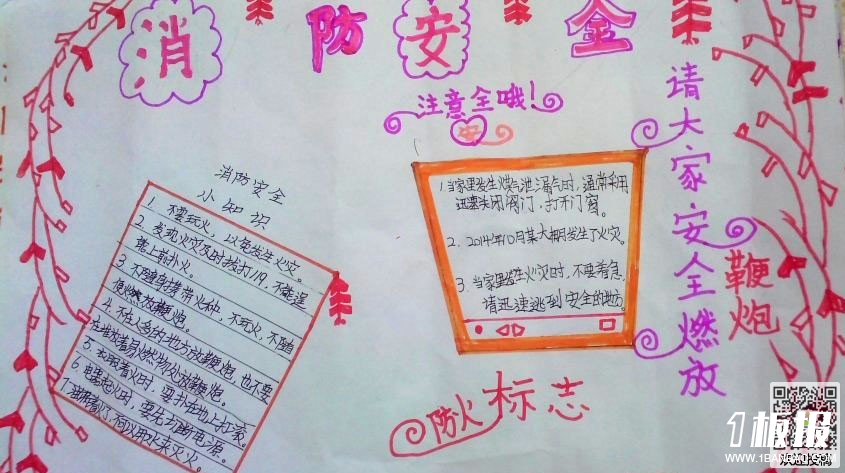 消防安全
注意安全哦!
请大家安全燃放
鞭炮
消防安全
小知识
1. 不要玩火，以免发生火灾。
2. 发现火灾及时拨打119，不能逞
能上前扑火。
3. 不随身携带火种，不玩火，不随
便燃放鞭炮。
4. 不在人多的地方放鞭炮，也不要
在堆放着易燃物处放鞭炮。
5. 衣服着火时，要扑在地上打滚。
6. 电器起火时，要先切断电源。
7. 油锅着了，不可以用水来灭火。
1. 当家里发生煤气泄漏气时，通常采用
迅速关闭阀门，打开门窗。
2. 2014年10月某大棚发生了火灾。
3. 当家里发生火灾时，不要着急，
请迅速逃到安全的地方。
防火标志
1板报
WWW.1BANBAO.COM